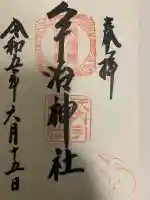 奉拝
宇治神社
令和五年六月十五日